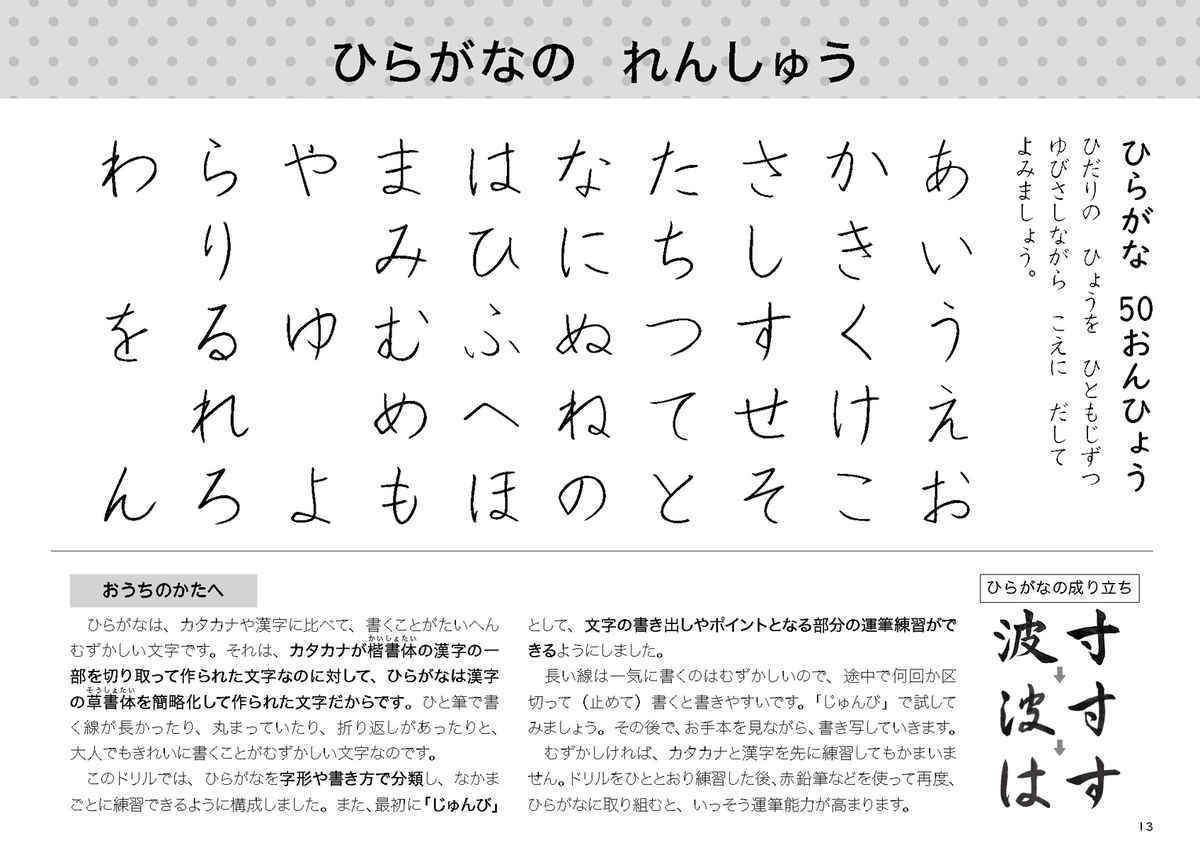 ひらがなの　れんしゅう
ひらがな　50おんひょう
ひだりの　ひょうを　ひともじずつ
ゆびさしながら　こえに　だして
よみましょう。
あいうえお
かきくけこ
さしすせそ
たちつてと
なにぬねの
はひふへほ
まみむめも
やゆよ
らりるれろ
わをん
おうちのかたへ
ひらがなは、カタカナや漢字に比べて、書くことがたいへん
むずかしい文字です。それは、カタカナが楷書体の漢字の一
かいしょたい
部を切り取って作られた文字なのに対して、ひらがなは漢字
の草書体を簡略化して作られた文字だからです。ひと筆で書
そうしょたい
く線が長かったり、丸まっていたり、折り返しがあったりと、
大人でもきれいに書くことがむずかしい文字なのです。
このドリルでは、ひらがなを字形や書き方で分類し、なかま
ごとに練習できるように構成しました。また、最初に「じゅんび」
として、文字の書き出しやポイントとなる部分の運筆練習がで
きるようにしました。
長い線は一気に書くのはむずかしいので、途中で何回か区
切って（止めて）書くと書きやすいです。「じゅんび」で試して
みましょう。その後で、お手本を見ながら、書き写していきます。
むずかしければ、カタカナと漢字を先に練習してもかまいま
せん。ドリルをひととおり練習した後、赤鉛筆などを使って再度、
ひらがなに取り組むと、いっそう運筆能力が高まります。
ひらがなの成り立ち
寸
寸
す
波
波
は
13